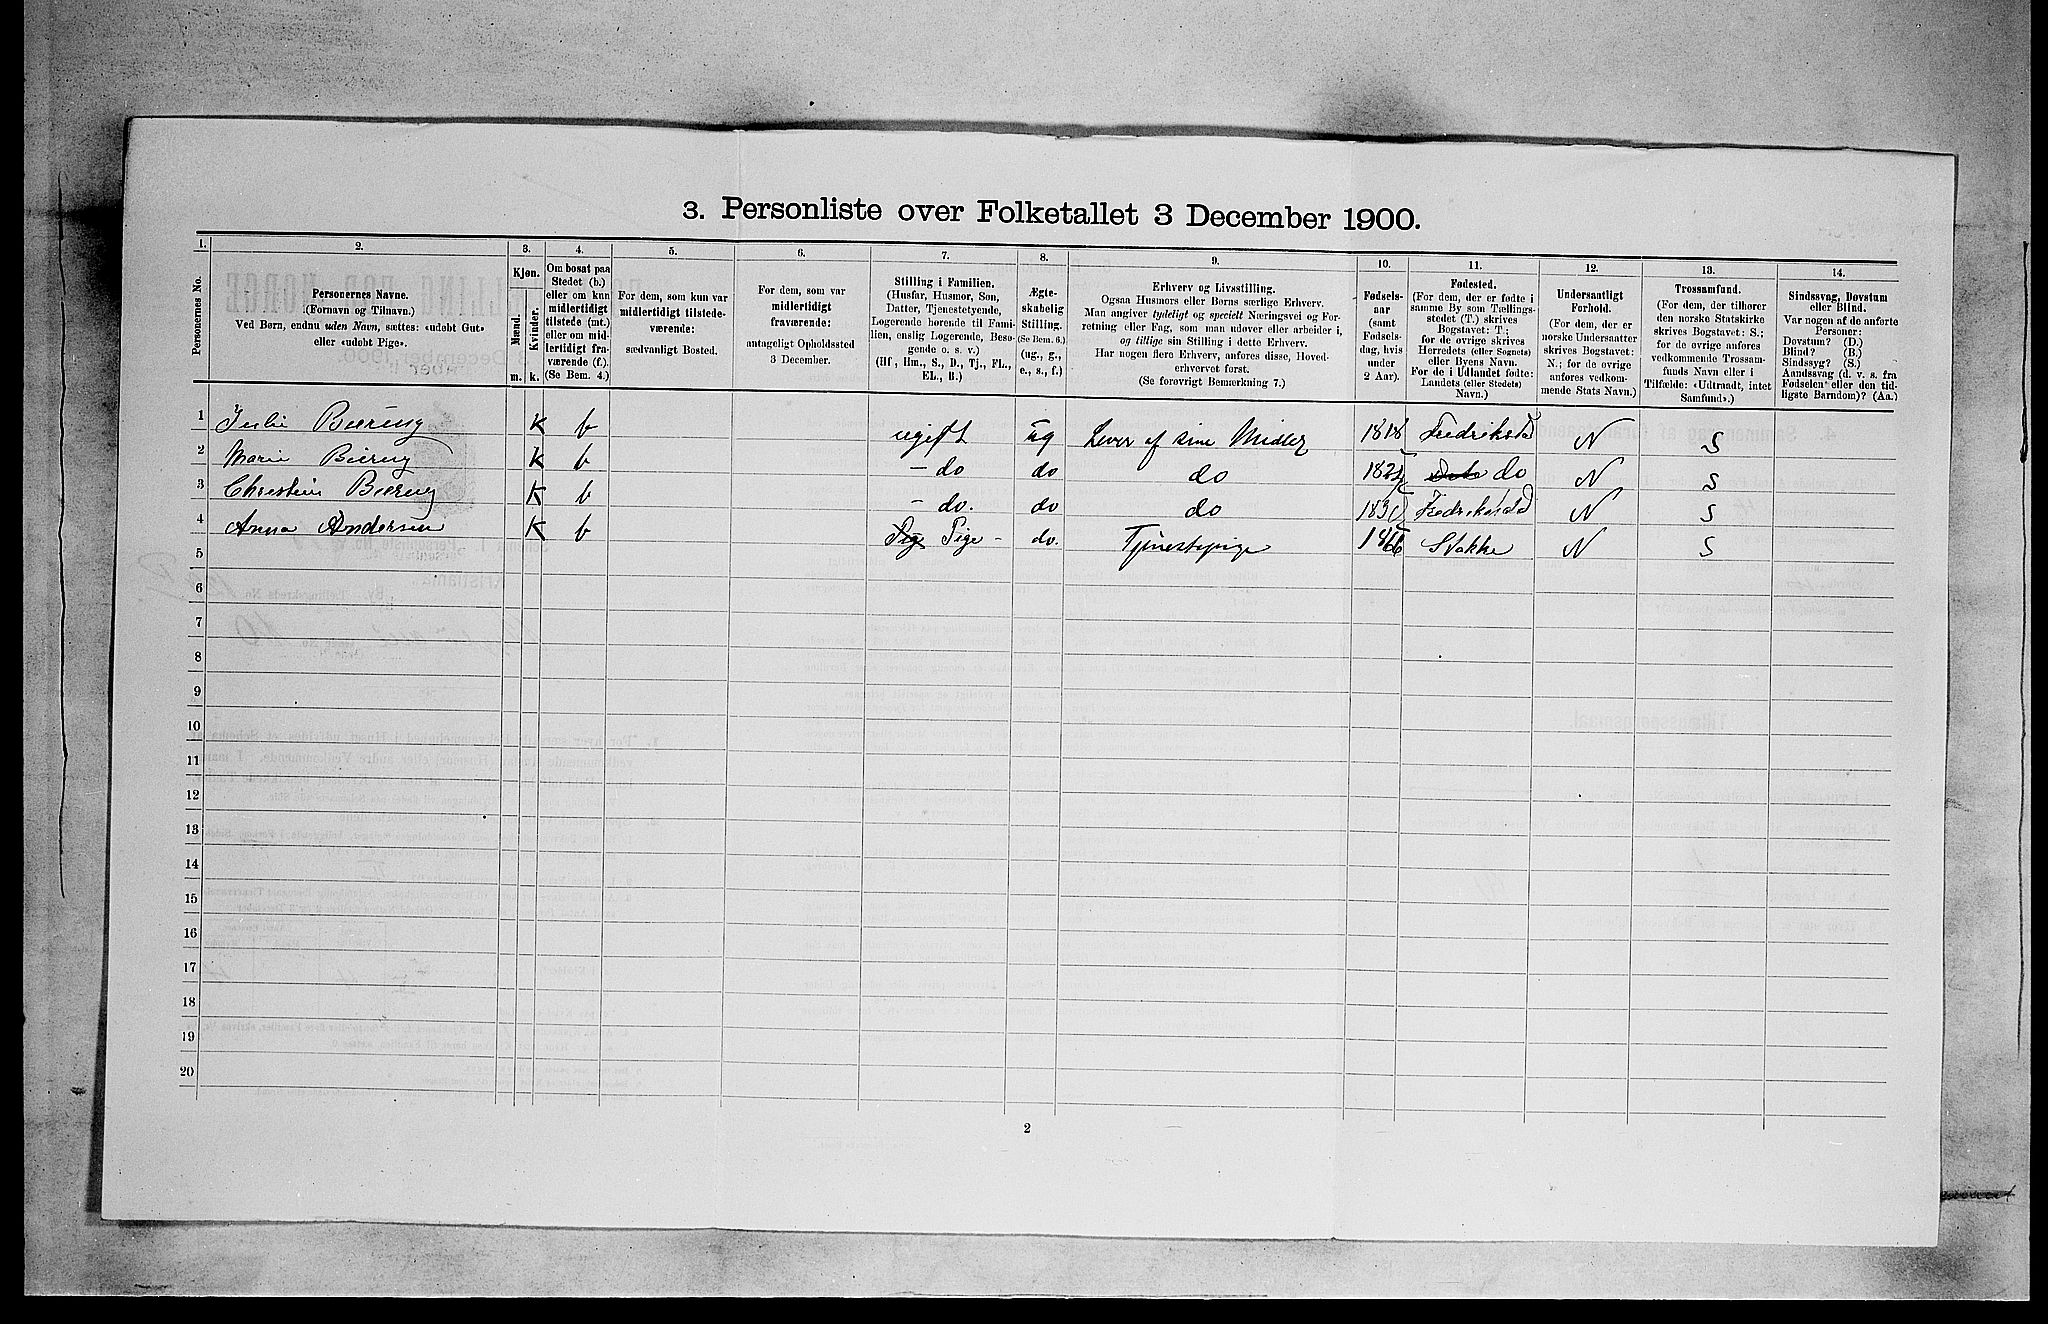 3. Personliste over Folketallet 3 December 1900.
1. 2. 3. 4. 5. 6. 7. 8. 9. 10. 11. 12. 13. 14.
Personernes No.
Personernes Navne.
(Fornavn og Tilnavn.)
Ved Børn, endnu uden Navn, sættes: «udøbt Gut»
eller «udøbt Pige».
Kjøn.
Mænd.
Kvinder.
m. k.
Om bosat paa
Stedet (b.)
eller om kun
midlertidigt
tilstede (mt.)
eller om mid-
lertidigt fra-
værende (f.).
(Se Bem. 4.)
For dem, som kun var
midlertidigt tilstede-
værende:
sædvanligt Bosted.
For dem, som var
midlertidigt
fraværende:
antageligt Opholdssted
3 December.
Stilling i Familien.
(Husfar, Husmor, Søn,
Datter, Tjenestetyende,
Logerende hørende til Fami-
lien, enslig Logerende, Besø-
gende o. s. v.)
(Hf., Hm., S., D., Tj., FL.,
EL., B.)
Ægte-
skabelig
Stilling.
(Se Bem. 6.)
(ug., g.,
e., s., f.)
Erhverv og Livsstilling.
Ogsaa Husmors eller Børns særlige Erhverv.
Man angiver tydeligt og specielt Næringsvei og For-
retning eller Fag, som man udøver eller arbeider i,
og tillige sin Stilling i dette Erhverv.
Har nogen flere Erhverv, anføres disse, Hoved-
erhvervet først.
(Se forøvrigt Bemerkning 7.)
Fødsels-
aar
(samt
Fødsels-
dag, hvis
under
2 Aar).
Fødested.
(For dem, der er fødte i
samme By som Tællings-
stedet (T.) skrives
Bogstavet: T.;
for de øvrige skrives
Herredets (eller Sognets)
eller Byens Navn.
For de i Udlandet fødte:
Landets (eller Stedets)
Navn.)
Undersaatligt
Forhold.
(For dem, der er
norske Undersaatter
skrives Bogstavet:
N.; for de øvrige
anføres vedkom-
mende Stats Navn.)
Trossamfund.
(For dem, der tilhører
den norske Statskirke
skrives Bogstavet: S.;
for de øvrige anføres
vedkommende Trossam-
funds Navn eller i
Tilfælde: «Udtraadt, intet
Samfund».)
Sindssvag, Døvstum
eller Blind.
Var nogen af de anførte
Personer:
Døvstum? (D.)
Blind? (B.)
Sindssyg? (S.)
Aandssvag (d. v. s. fra
Fødselen eller den tid-
ligste Barndom)? (Aa.)
1 Julie Biering K b ugift ug Lever af sine Midler 1818 Fredrikstad N S
2 Marie Biering K b - do do do do N S
3 Christin Biering K b - do. do do Fredrikstad N S
4 Anna Andersen K b Pige Pige - do. Tjenestepige 1866 Stokke N S
5
6
7
8
9
10
11
12
13
14
15
16
17
18
19
20
2